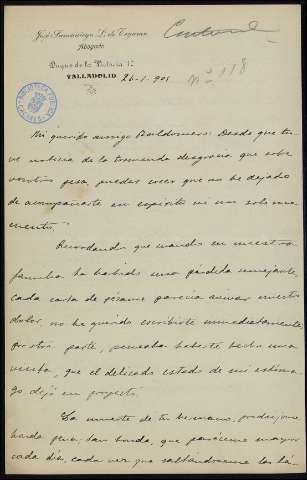 José Samaniego L. de Cegama
Abogado
Duque de la Victoria, 12
VALLADOLID 26-1-901
Contestada
Nº 118
BIBLIOTECA
Mi querido amigo Baldomero: Desde que tu-
ve noticia de la tremenda desgracia que sobre
vosotros pesa, puedes creer que no he dejado
de acompañarte en espíritu ni un solo mo-
mento.
Recordando que cuando en nuestra
familia ha habido una pérdida semejante,
cada carta de pésame parecía avivar nuestro
dolor, no he querido escribirte inmediatamente.
Por otra parte, pensaba haberte hecho una
visita, que el delicado estado de mi estóma-
go, dejó en proyecto.
La muerte de tu hermano, prodújome
honda pena; tan honda, que paréceme mayor
cada día, cada vez que saltándoseme las lá-